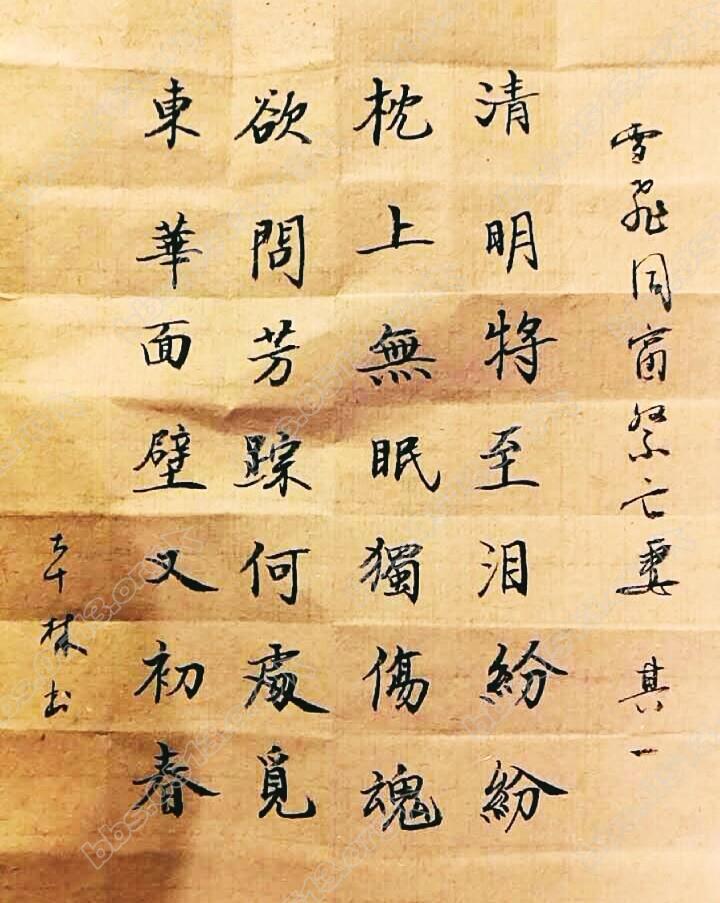 雪飛同窗祭亡妻 其一
清明將至泪紛紛
枕上無眠獨傷魂
欲問芳踪何處覓
東華面壁又初春
林书